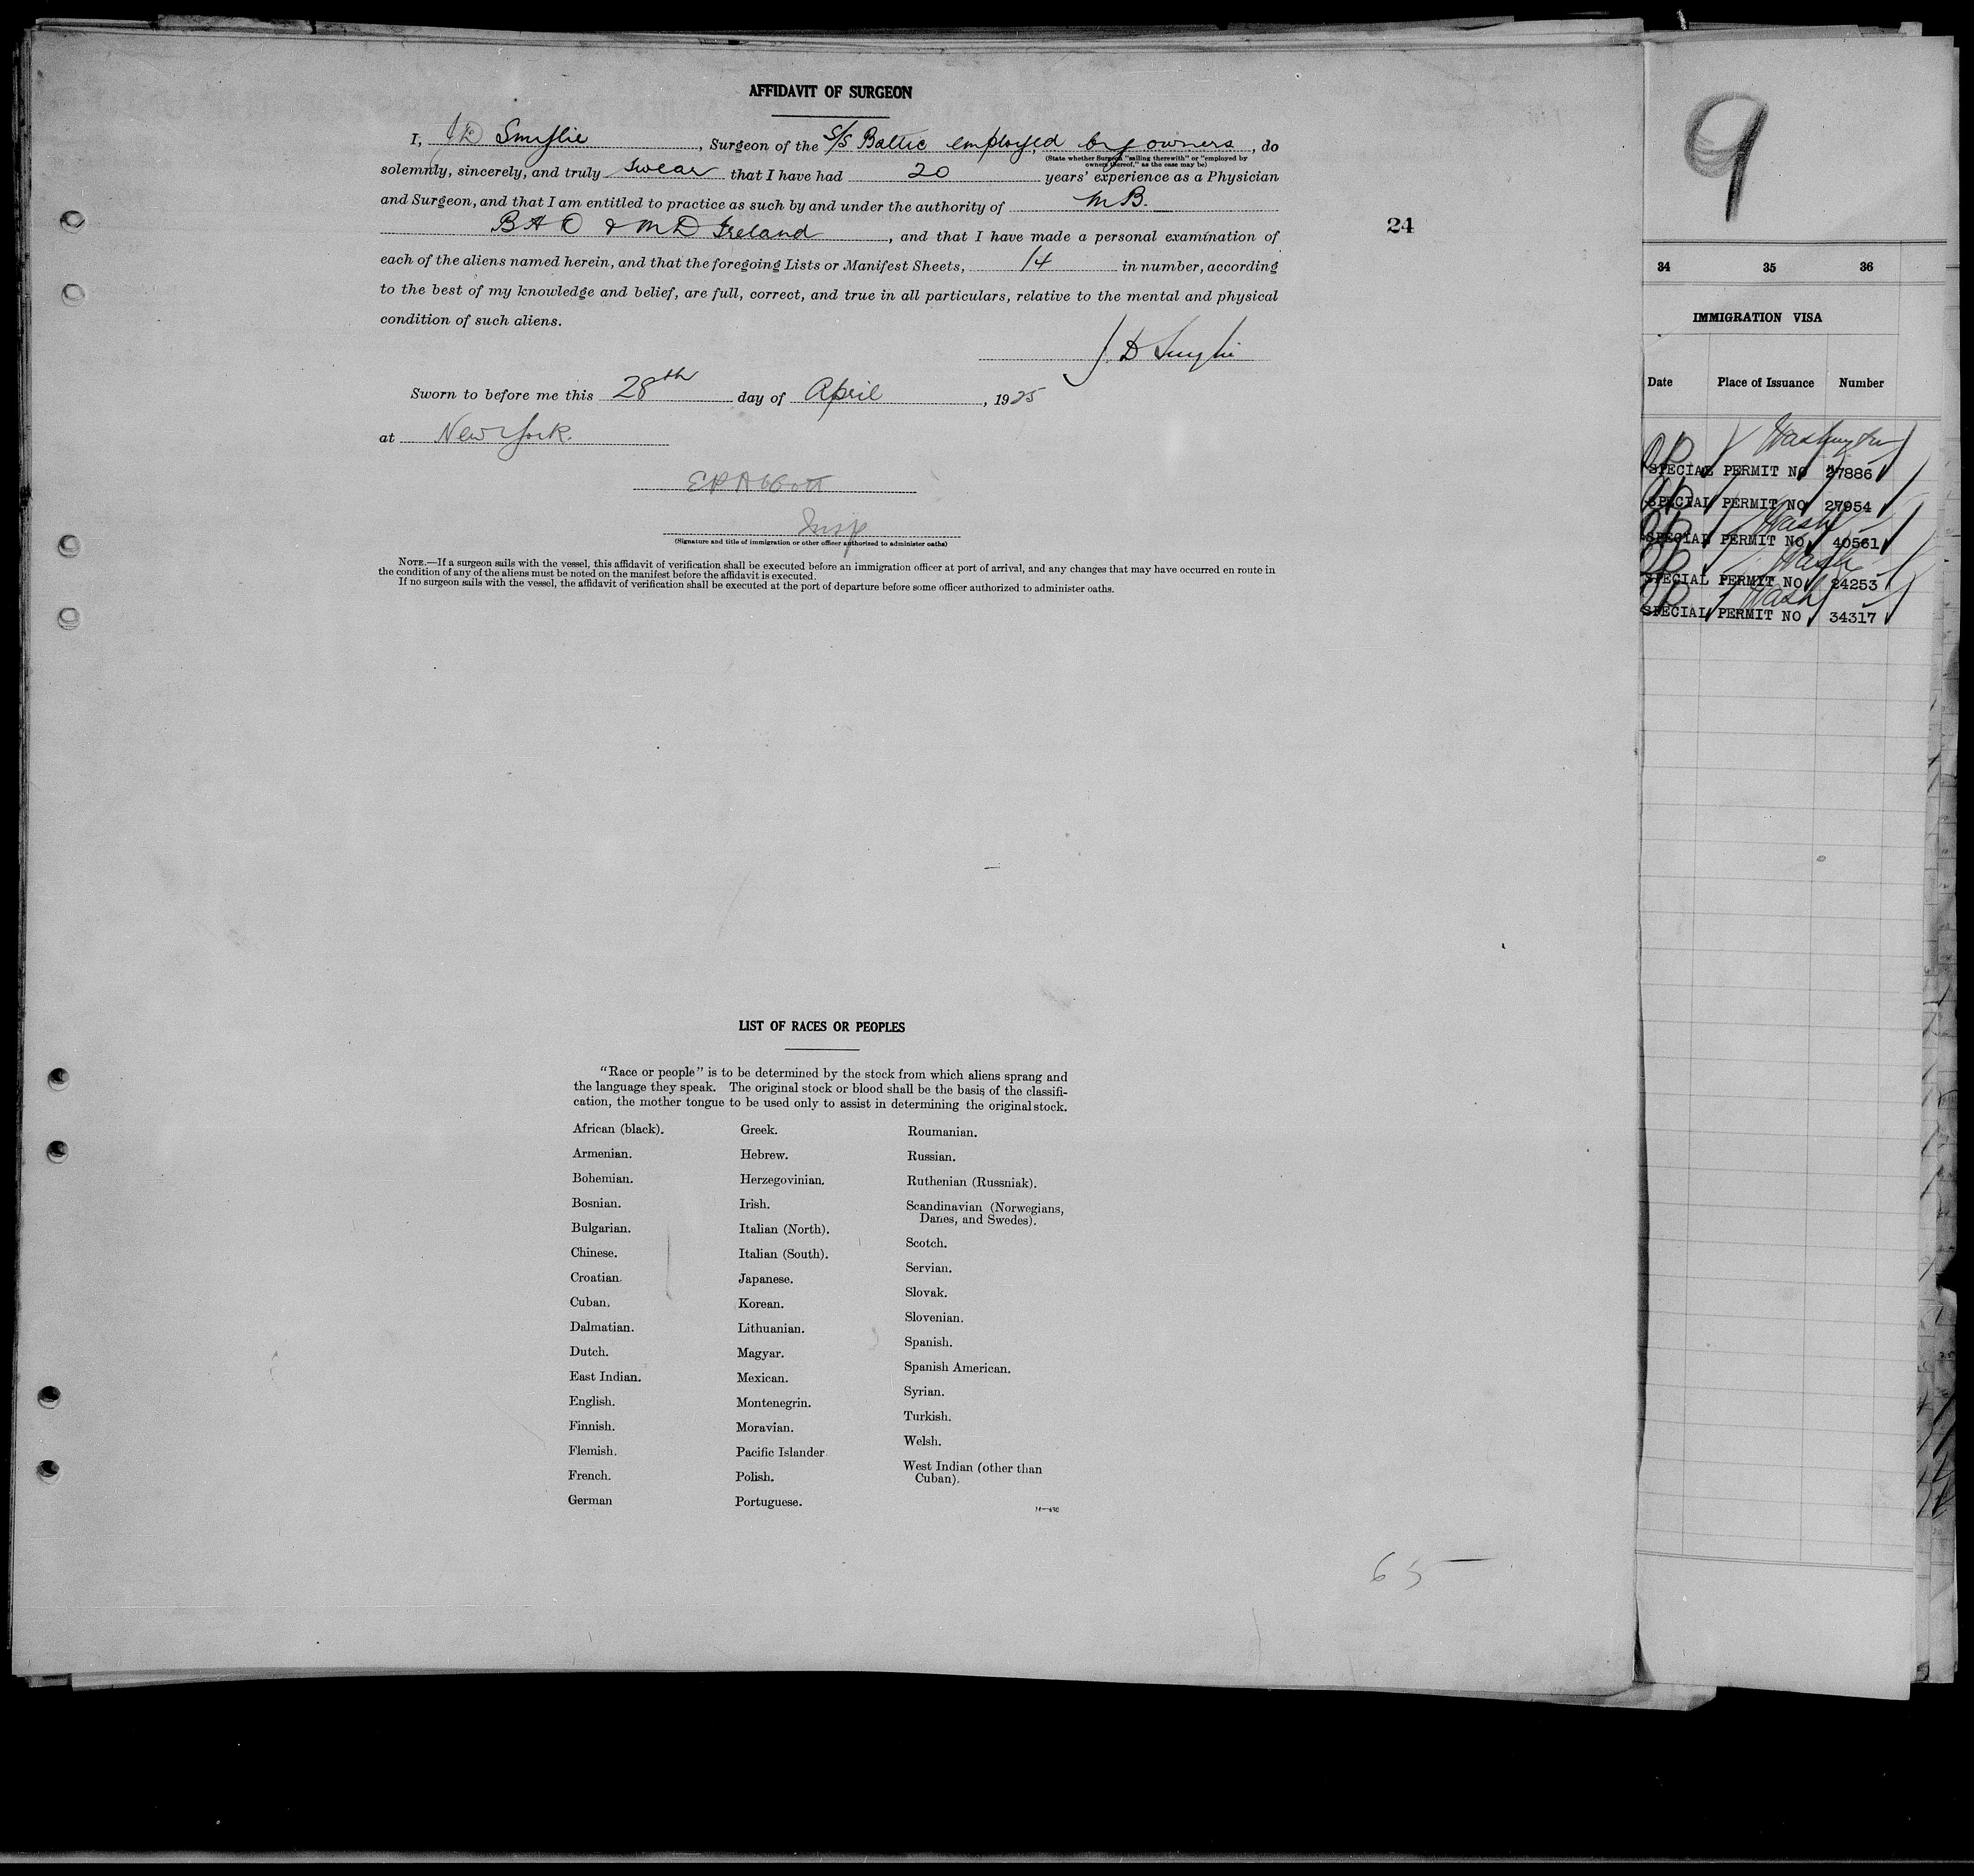 AFFIDAVIT OF SURGEON
I, J D Smylie, Surgeon of the S/S Baltic employed by owners, do
(State whether Surgeon "sailing therewith" or "employed by
owners thereof," as the case may be)
solemnly, sincerely, and truly swear that I have had 20 years' experience as a Physician
and Surgeon, and that I am entitled to practice as such by and under the authority of M B.
B A O & M D Ireland, and that I have made a personal examination of
each of the aliens named herein, and that the foregoing Lists or Manifest Sheets, 14 in number, according
to the best of my knowledge and belief, are full, correct, and true in all particulars, relative to the mental and physical
condition of such aliens.
J. D Smylie
Sworn to before me this 28th day of April, 1925
at New York.
E P Abbott
Insp
(Signature and title of immigration or other officer authorized to administer oaths)
NOTE.—If a surgeon sails with the vessel, this affidavit of verification shall be executed before an immigration officer at port of arrival, and any changes that may have occurred en route in
the condition of any of the aliens must be noted on the manifest before the affidavit is executed.
If no surgeon sails with the vessel, the affidavit of verification shall be executed at the port of departure before some officer authorized to administer oaths.
24
LIST OF RACES OR PEOPLES
"Race or people" is to be determined by the stock from which aliens sprang and
the language they speak. The original stock or blood shall be the basis of the classifi-
cation, the mother tongue to be used only to assist in determining the original stock.
African (black).
Armenian.
Bohemian.
Bosnian.
Bulgarian.
Chinese.
Croatian.
Cuban.
Dalmatian.
Dutch.
East Indian.
English.
Finnish.
Flemish.
French.
German
Greek.
Hebrew.
Herzegovinian.
Irish.
Italian (North).
Italian (South).
Japanese.
Korean.
Lithuanian.
Magyar.
Mexican.
Montenegrin.
Moravian.
Pacific Islander
Polish.
Portuguese.
Roumanian.
Russian.
Ruthenian (Russniak).
Scandinavian (Norwegians,
Danes, and Swedes).
Scotch.
Servian.
Slovak.
Slovenian.
Spanish.
Spanish American.
Syrian.
Turkish.
Welsh.
West Indian (other than
Cuban).
65
9
34 35 36
IMMIGRATION VISA
Date Place of Issuance Number
Washington
SPECIAL PERMIT NO 27886
SPECIAL PERMIT NO 27954
Wash
SPECIAL PERMIT NO 40561
Wash
SPECIAL PERMIT NO 24253
Wash
SPECIAL PERMIT NO 34317